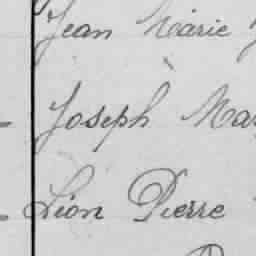 Jean Marie
Joseph Mar
Léon Pierre